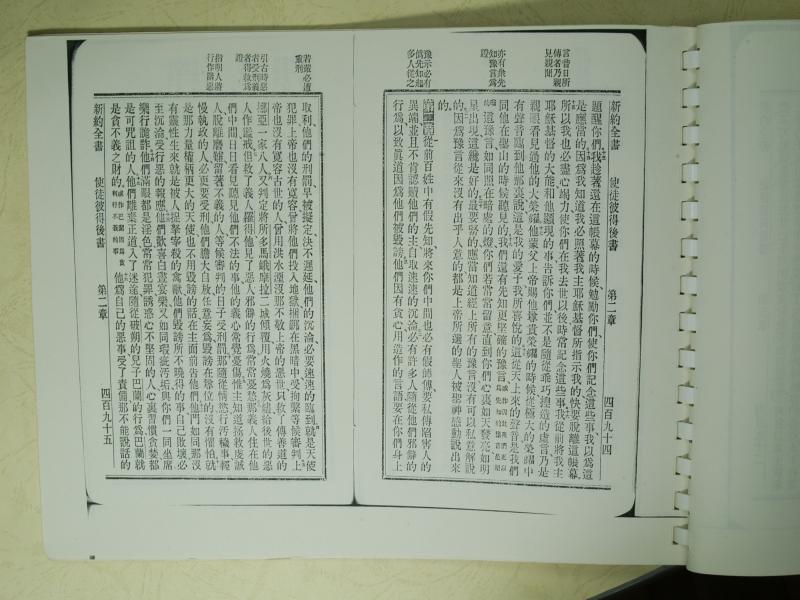 新約全書 使徒彼得後書 第二章 四百九十四
言昔日所
傳者乃親
見親聞
亦有衆先
知豫言爲
證
豫示必有
僞先知起
多人從之
題醒你們、我趁著還在這帳幕的時候、勉勵你們、使你們記念這些事、我以爲這
是應當的、因爲我知道我必照著我主耶穌基督所指示我的、快要脫離這帳幕、
所以我也必盡心竭力、使你們在我去世以後、時常記念這些事、我從前將我主
耶穌基督的大能、和他顯現的事、告訴你們、並不是隨從乖巧捏造的虛言、乃是
親眼看見過他的大榮耀、他蒙父上帝賜他尊貴榮耀的時候、從極大的榮耀中
有聲音臨到他那裏、說這是我的愛子、我所喜悅的、這從天上來的聲音、是我們
同他在聖山的時候聽見的、我們還有先知更堅確的豫言
這豫言如同照在暗處的燈、你們若常常留意、直到你們心裏如天發亮、如明
星出現、這纔是好的、最要緊的、應當知道經上所有的豫言、沒有可以私意解說
的、因爲豫言從來沒有出乎人意的、都是上帝所選的聖人、被聖神感動說出來
的
第二章 從前百姓中有假先知、將來你們中間也必有假師傅、要私傳陷害人的
異端、並且不肯認贖他們的主、自取速速的沉淪、必有許多人隨從他們邪僻的
行爲、以致眞道因爲他們被毀謗、他們因有貪心、用造作的言語、要在你們身上
新約全書 使徒彼得後書 第二章 四百九十五
若輩必遭
重刑
引古時惡
者受刑義
者得救爲
證
指明人將
行作諸惡
取利、他們的刑罰、早被擬定、決不遲延、他們的沉淪、必要速速的臨到、就是天使
犯罪、上帝也沒有寬容、曾將他們投入地獄、捆鎖在黑暗中、受拘繫等候審判、上
帝也沒有寬容古世的人、曾用洪水湮沒那不敬上帝的惡世、只救了傳善道的
挪亞一家八人、又判定將所多馬蛾摩拉二城傾覆、用火燒爲灰燼、給後世的惡
人作鑑戒、但救了義人羅得、他見了惡人邪僻的行爲、常常憂愁、那義人住在他
們中間、日日看見聽見他們不法的事、他的義心常覺憂傷、惟主知道拯救虔誠
人脫離磨難、留著不義的人等候審判的日子受刑罰、那隨從情慾行汚穢事、輕
慢執政的人、必更要受刑、他們膽大自放、任意妄爲、毀謗在尊位的、沒有懼怕、就
是那力量權柄更大的天使、也不用毀謗的話、在主面前告他們、他們如同那沒
有靈性、生來就是被人捉拏宰殺的禽獸、他們毀謗所不曉得的事、自己敗壞、必
至沉淪、受行惡的報應、他們歡喜白晝宴樂、又如同瑕疵污垢、與你們一同坐席
樂行詭詐、他們滿眼都是淫色、常常犯罪、誘惑心不堅固的人、心裏習慣貪婪、都
是可咒詛的人、他們離棄正道、入了迷途、隨從破朔的兒子巴蘭的行爲、巴蘭就
是貪不義之財的、他爲自己的惡事受了責備、那不能說話的